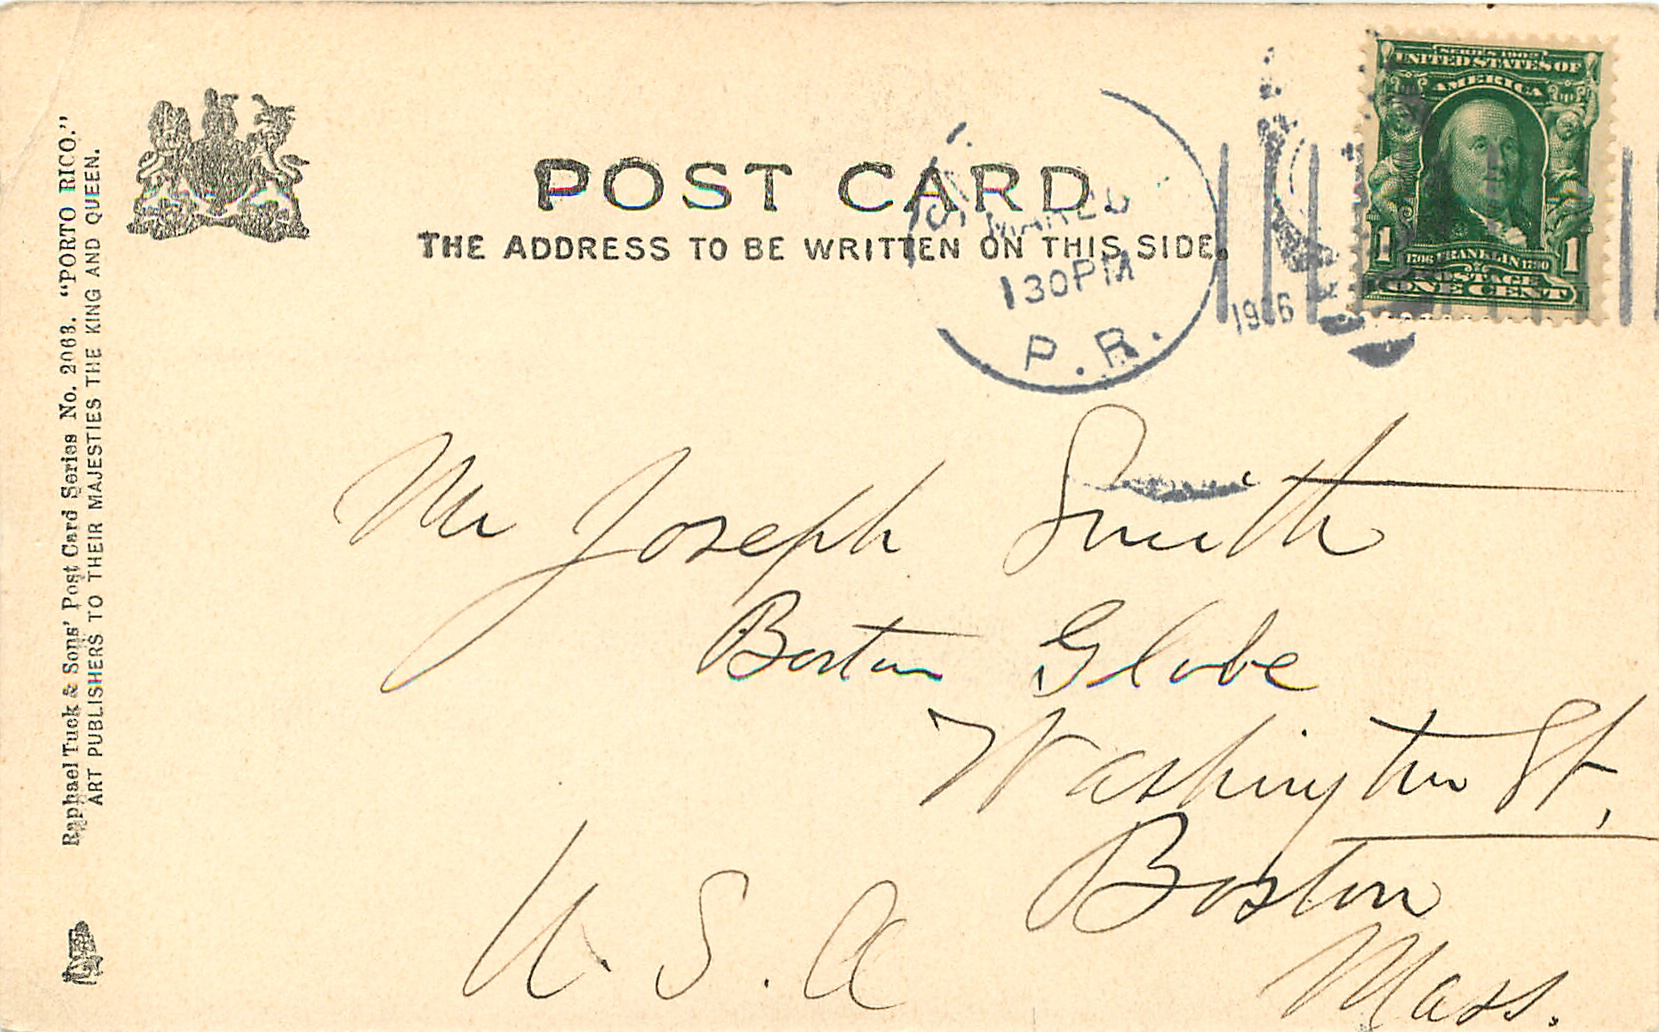 POST CARD.
THE ADDRESS TO BE WRITTEN ON THIS SIDE.
Raphael Tuck & Sons' Post Card Series No. 2063. "PORTO RICO."
ART PUBLISHERS TO THEIR MAJESTIES THE KING AND QUEEN.
130PM
P.R.
1906
SERIES 1902
UNITED STATES OF
AMERICA
1 1
1706 FRANKLIN 1790
POSTAGE
ONE CENT
Mr Joseph Smith
Boston Globe
Washington St,
Boston
Mass.
U.S.A